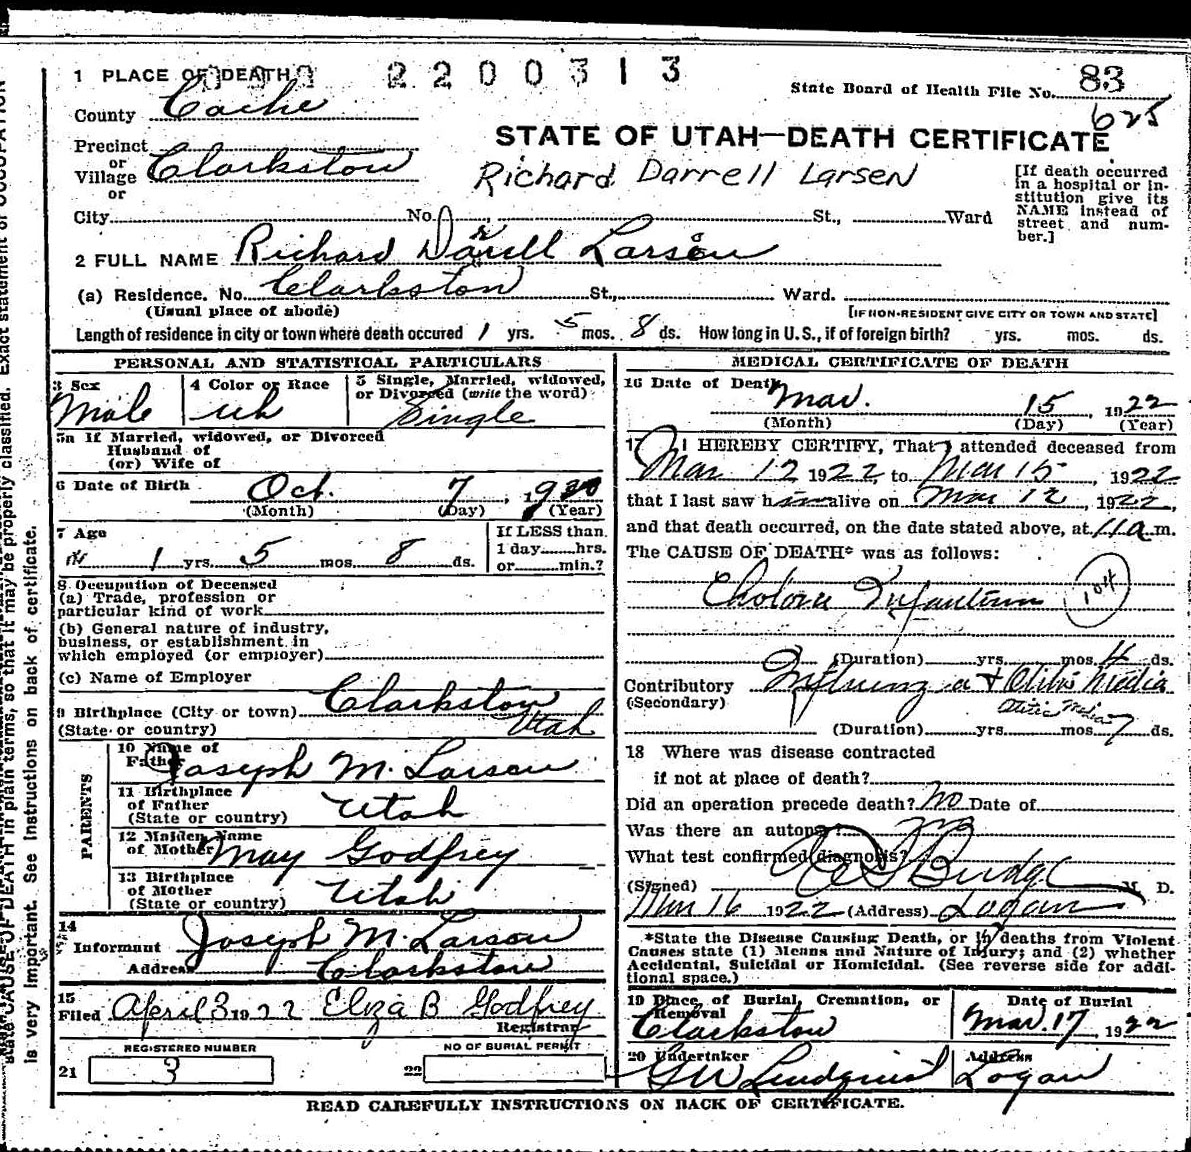 1 PLACE OF DEATH 2200313
State Board of Health File No. 83
County Cache
625
STATE OF UTAH—DEATH CERTIFICATE
Precinct
or
Village Clarkston
or
Richard Darrell Larsen
[If death occurred
in a hospital or in-
stitution give its
NAME instead of
street and num-
ber.]
City No. St., Ward
2 FULL NAME Richard Darell Larsen
(a) Residence. No. Clarkston St., Ward.
(Usual place of abode)
[IF NON-RESIDENT GIVE CITY OR TOWN AND STATE]
Length of residence in city or town where death occured 1 yrs. 5 mos. 8 ds. How long in U.S., if of foreign birth? yrs. mos. ds.
PERSONAL AND STATISTICAL PARTICULARS
3 Sex
Male
4 Color or Race
Wh
5 Single, Married, widowed,
or Divorced (write the word)
Single
5a If Married, widowed, or Divorced
Husband of
(or) Wife of
6 Date of Birth Oct. 7, 1920
(Month) (Day) (Year)
7 Age
1 yrs. 5 mos. 8 ds.
If LESS than
1 day hrs.
or min.?
8 Occupation of Deceased
(a) Trade, profession or
particular kind of work
(b) General nature of industry,
business, or establishment in
which employed (or employer)
(c) Name of Employer
9 Birthplace (City or town) Clarkston
(State or country) Utah
PARENTS
10 Name of
Father Joseph M. Larsen
11 Birthplace
of Father
(State or country) Utah
12 Maiden Name
of Mother May Godfrey
13 Birthplace
of Mother
(State or country) Utah
14
Informant Joseph M. Larsen
Address Clarkston
15
Filed April 3 1922 Eliza B Godfrey
Registrar
REGISTERED NUMBER
21 3
NO OF BURIAL PERMIT
22
MEDICAL CERTIFICATE OF DEATH
16 Date of Death
Mar. 15, 1922
(Month) (Day) (Year)
17 I HEREBY CERTIFY, That I attended deceased from
Mar 12 1922, to Mar 15, 1922
that I last saw him alive on Mar 12, 1922,
and that death occurred, on the date stated above, at 11 a m.
The CAUSE OF DEATH* was as follows:
Cholera Infantum 104
(Duration) yrs. mos. 4 ds.
Contributory Influenza + Otitis Media
(Secondary) Otitis Media
(Duration) yrs. mos. 7 ds.
18 Where was disease contracted
if not at place of death?
Did an operation precede death? No Date of
Was there an autopsy? no
What test confirmed diagnosis?
(Signed) Budge M. D.
Mar 16 1922 (Address) Logan
*State the Disease Causing Death, or in deaths from Violent
Causes state (1) Means and Nature of Injury; and (2) whether
Accidental, Suicidal or Homicidal. (See reverse side for addi-
tional space.)
19 Place of Burial, Cremation, or
Removal
Clarkston
Date of Burial
Mar. 17, 1922
20 Undertaker
G W Lindquist
Address
Logan
READ CAREFULLY INSTRUCTIONS ON BACK OF CERTIFICATE.
state CAUSE OF DEATH in plain terms, so that it may be properly classified. Exact statement of OCCUPATION
is very important. See Instructions on back of certificate.